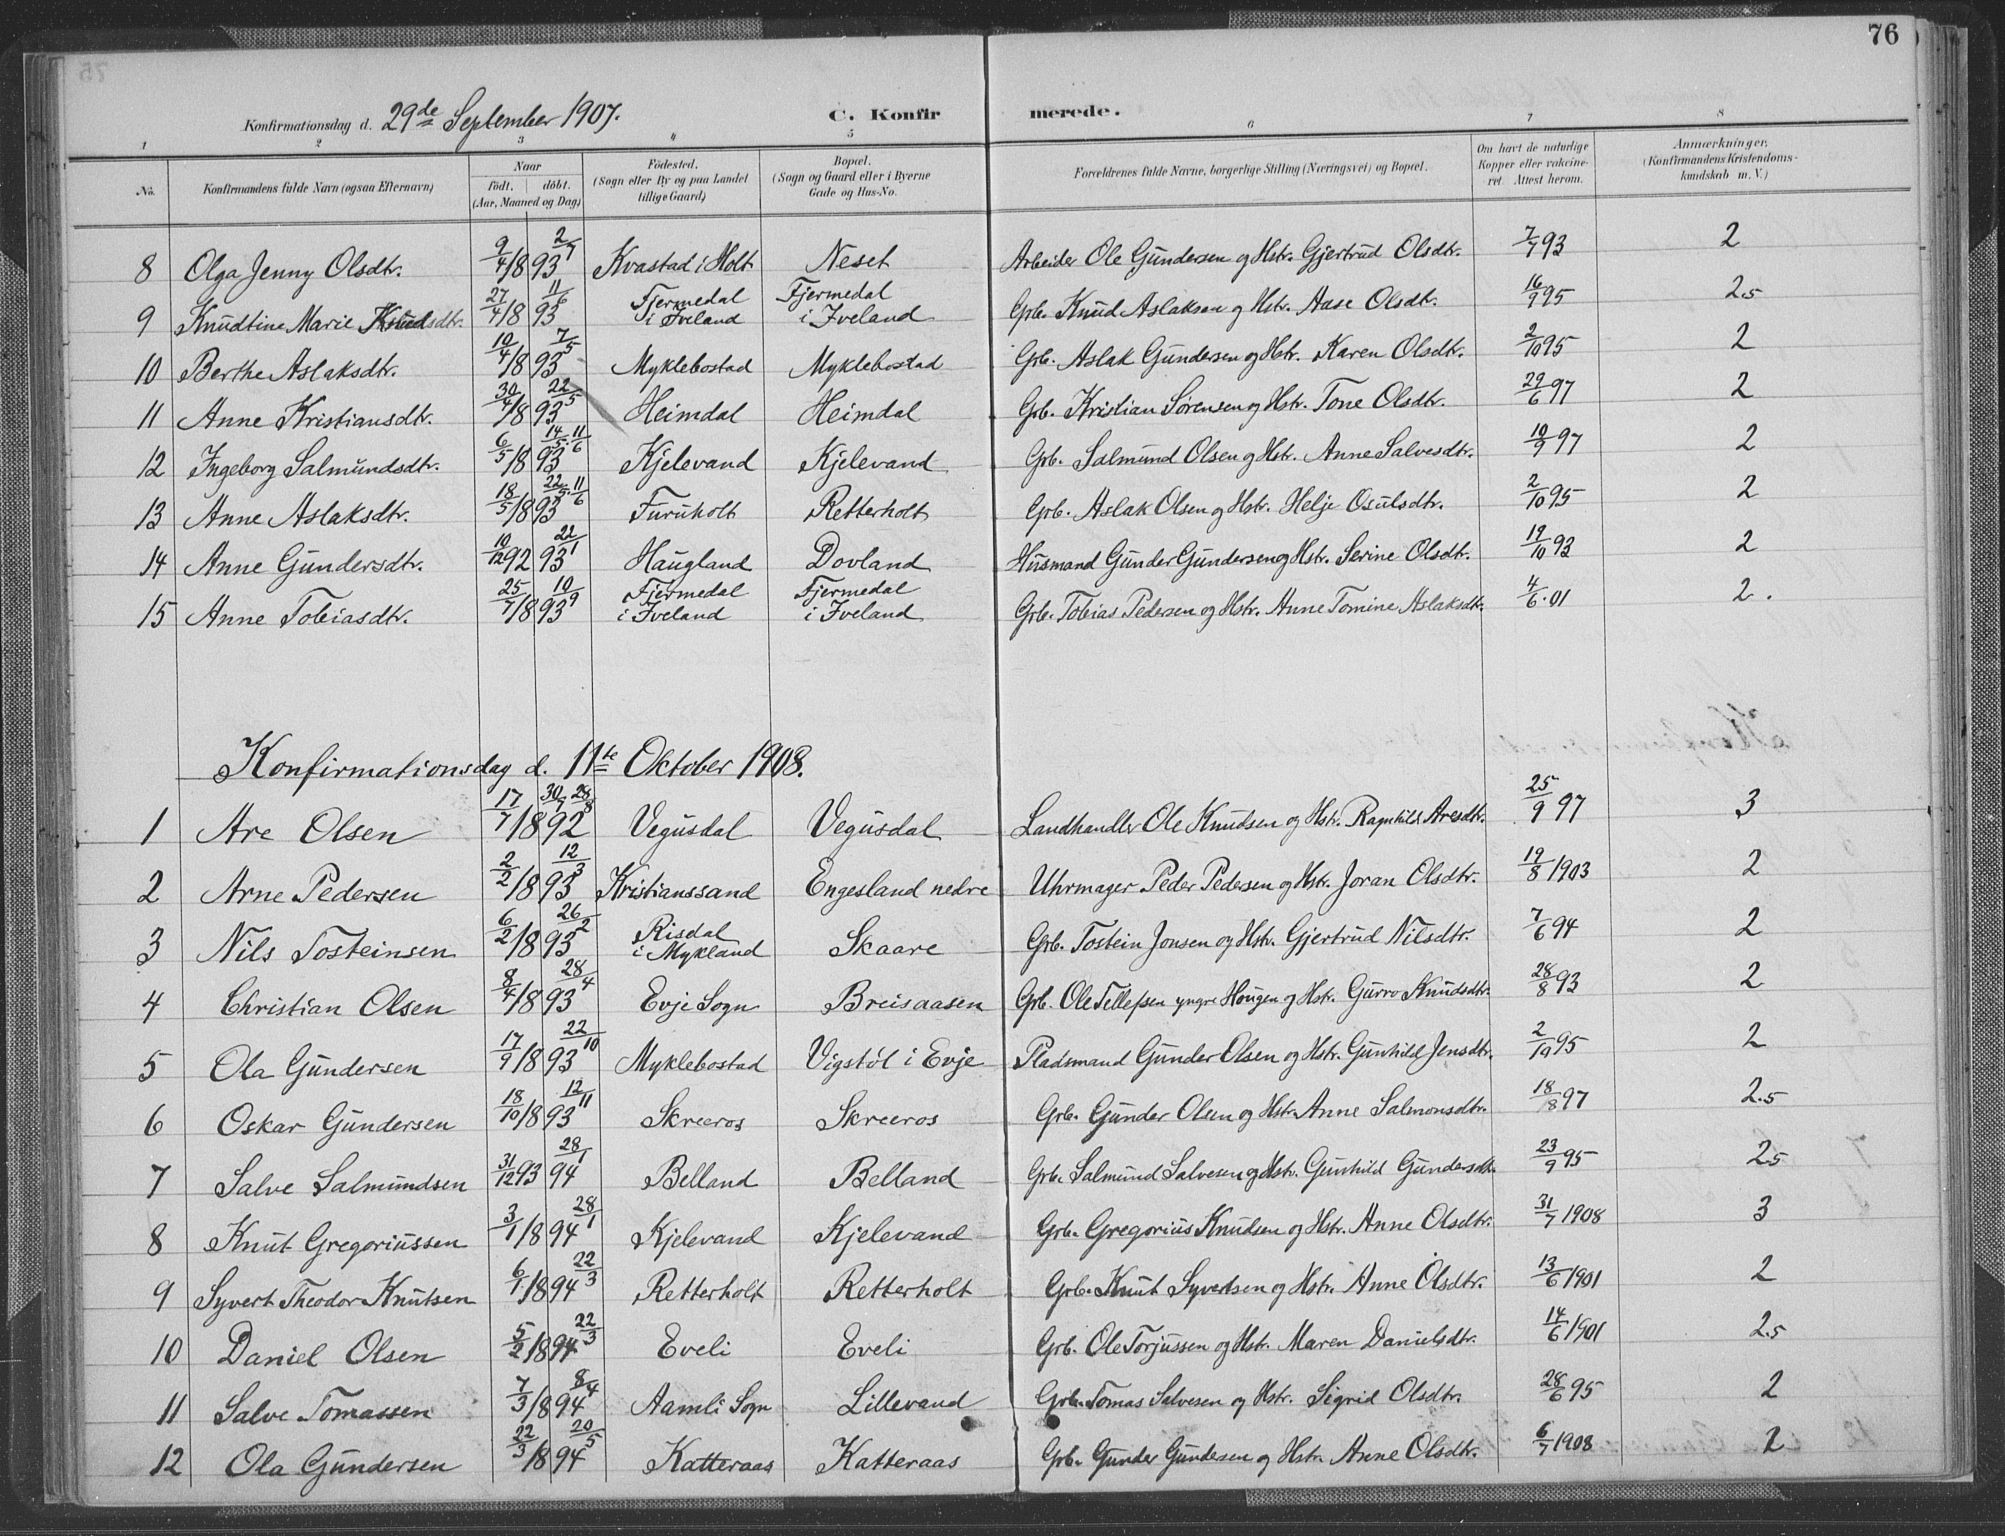 76
Konfirmationsdag d. 29de September 1907. C. Konfirmerede.
1 2 3 4 5 6 7 8
No. Konfirmandens fulde Navn (ogsaa Efternavn) Naar født. døbt. (Aar, Maaned og Dag) Fødested. (Sogn eller By og paa Landet tillige Gaard) Bopæl. (Sogn og Gaard eller i Byerne Gade og Hus-No. Forældrenes fulde Navne, borgerlige Stilling (Næringsvei) og Bopæl. Om havt de naturlige Kopper eller vakcineret. Attest herom. Anmærkninger. (Konfirmandens Kristendomskundskab m. V.)
8 Olga Jenny Olsdtr. 9/4 1893 2/7 Kvastad i Holt Neset Arbeider Ole Gundersen og Hstr. Gjertrud Olsdtr. 7/7 93 2
9 Knudtine Marie Knudsdtr. 27/4 1893 11/6 Fjermedal i Iveland Fjermedal i Iveland Grb. Knud Aslaksen og Hstr. Aase Olsdtr. 16/9 95 2.5
10 Berthe Aslaksdtr. 10/4 1893 7/5 Myklebostad Myklebostad Grb. Aslak Gundersen og Hstr. Karen Olsdtr. 2/10 95 2
11 Anne Kristiansdtr. 30/4 1893 22/5 Heimdal Heimdal Grb. Kristian Sørensen og Hstr. Tone Olsdtr. 29/6 97 2
12 Ingeborg Salmundsdtr. 6/5 1893 14/5. 11/6 Kjelevand Kjelevand Grb. Salmund Olsen og Hstr. Anne Salvesdtr. 10/9 97 2
13 Anne Aslaksdtr. 18/5 1893 22/5. 11/6 Furuholt Retterholt Grb. Aslak Olsen og Hstr. Helje Osulsdtr. 2/10 95 2
14 Anne Gundersdtr. 10/12 92 93 22/1 Haugland Dovland Husmand Gunder Gundersen og Hstr. Serine Olsdtr. 19/10 93 2
15 Anne Tobiasdtr. 25/7 1893 10/9 Fjermedal i Iveland Fjermedal i Iveland Grb. Tobias Pedersen og Hstr. Anne Tomine Aslaksdtr. 4/6.01 2.
Konfirmationsdag d. 11te Oktober 1908.
1 Are Olsen 17/7 1892 30/7 28/8 Vegusdal Vegusdal Landhandler Ole Knudsen og Hstr. Ragnhild Aresdtr. 25/9 97 3
2 Arne Pedersen 2/2 1893 12/3 Kristianssand Engesland nedre Uhrmager Peder Pedersen og Hstr. Joran Olsdtr. 19/8 1903 2
3 Nils Tosteinsen 6/2 1893 26/2 Risdal i Mykland Skaare Grb. Tostein Jonsen og Hstr. Gjertrud Nilsdtr. 7/6 94 2
4 Christian Olsen 8/4 1893 28/4 Evje Sogn Breisaasen Grb. Ole Tellefsen yngre Hougen og Hstr. Gurro Knudsdtr. 28/8 93 2
5 Ola Gundersen 17/9 1893 22/10 Myklebostad Vigstøl i Evje Pladsmand Gunder Olsen og Hstr. Gunhild Jensdtr. 2/10 95 2
6 Oskar Gundersen 18/10 1893 12/11 Skreeros Skreeros Grb. Gunder Olsen og Hstr. Anne Salmonsdtr. 18/8 97 2.5
7 Salve Salmundsen 31/12 93 94 28/1 Belland Belland Grb. Salmund Salvesen og Hstr. Gunhild Gundersdtr. 23/9 95 2.5
8 Knut Gregoriussen 3/1 1894 28/1 Kjelevand Kjelevand Grb. Gregorius Knudsen og Hstr. Anne Olsdtr. 31/7 1908 3
9 Syvert Theodor Knutsen 6/1 1894 22/3 Retterholt Retterholt Grb. Knut Syvertsen og Hstr. Anne Olsdtr. 13/6 1901 2
10 Daniel Olsen 5/2 1894 22/3 Eveli Eveli Grb. Ole Torjussen og Hstr. Maren Danielsdtr. 14/6 1901 2.5
11 Salve Tomassen 7/3 1894 8/4 Aamli Sogn Lillevand Grb. Tomas Salvesen og Hstr. Sigrid Olsdtr. 28/6 95 2
12 Ola Gundersen 22/3 1894 20/5 Katteraas Katteraas Grb. Gunder Gundersen og Hstr. Anne Olsdtr. 6/7 1908 2